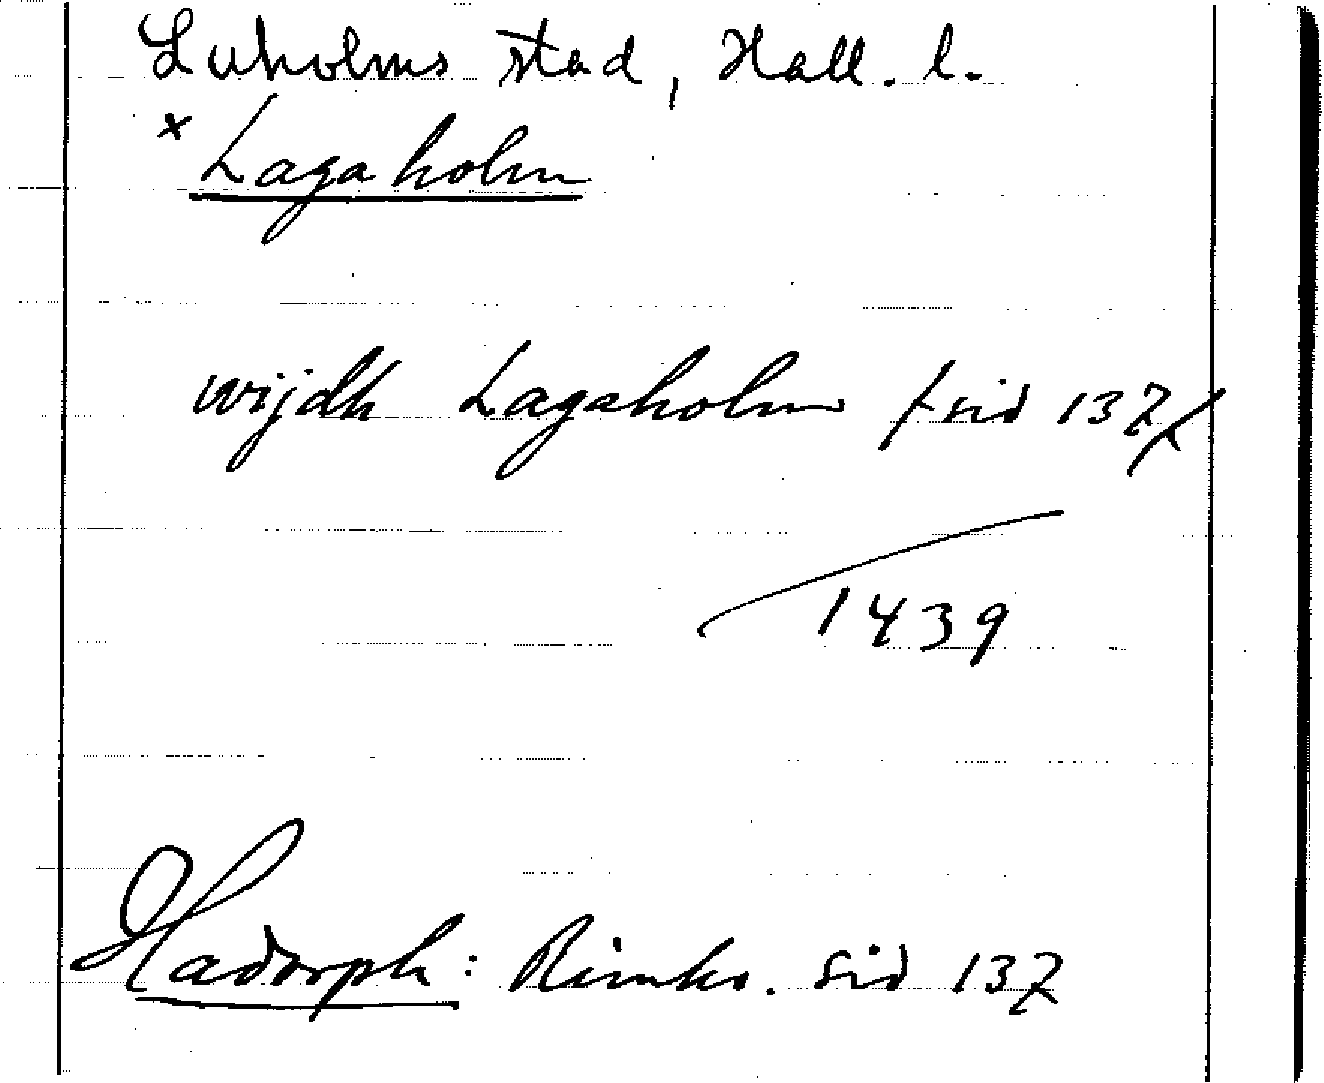 Laholms stad, Hall. l.
× Lagaholm
wijdh Lagaholm /sid 137/
1439
Hadorph: Rimkr. sid 137